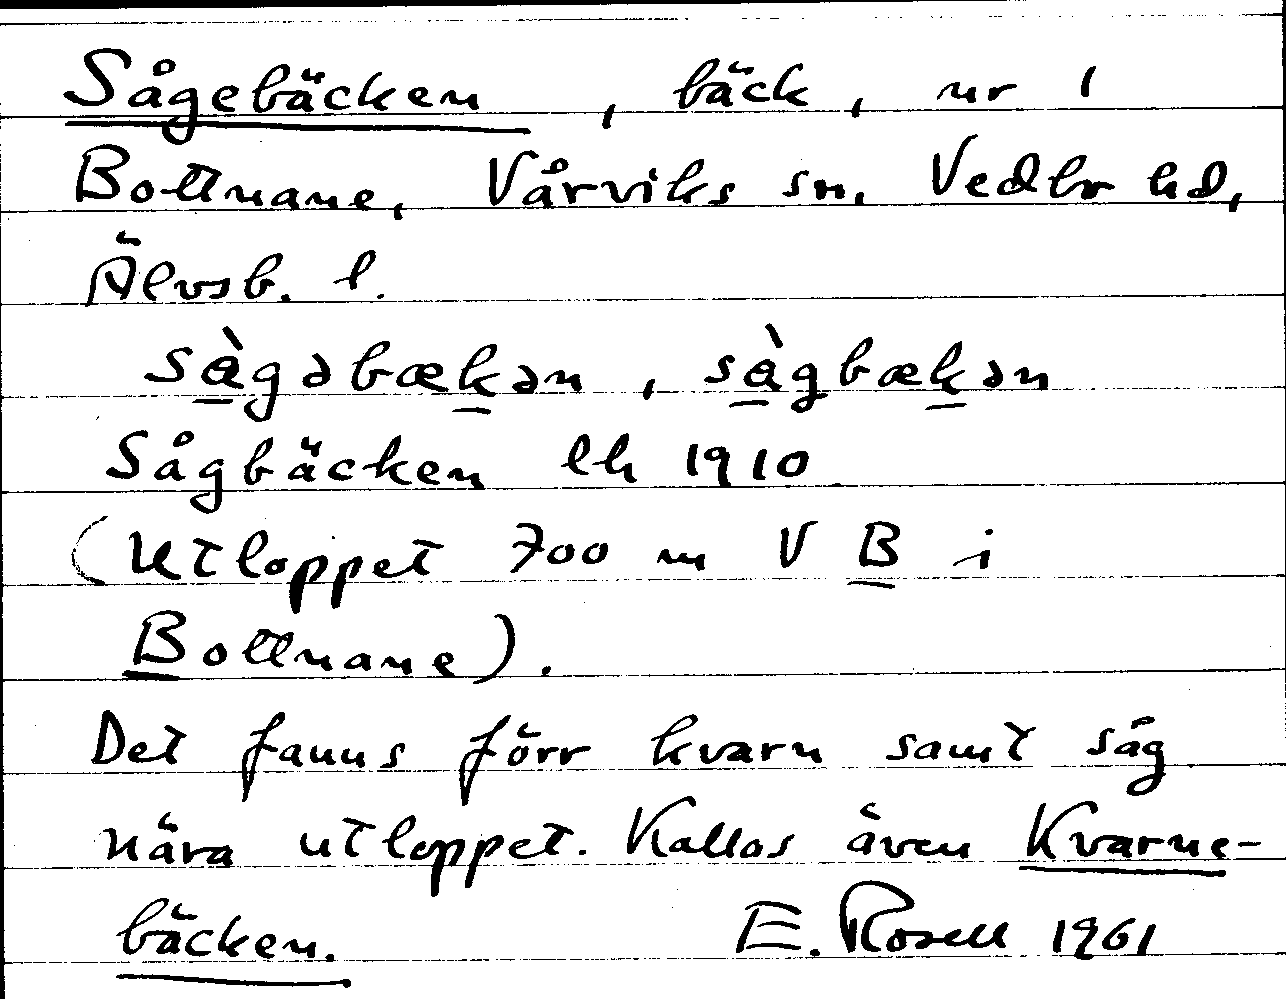 Sågebäcken, bäck, nr 1
Bottnane, Vårviks sn, Vedbr hd,
Älvsb. l.
sàgəbækən, sàgbækən
Sågbäcken lh 1910
(Utloppet 700 m V B i
Bottnane).
Det fanns förr kvarn samt såg
nära utloppet. Kallas även Kvarne-
bäcken. E. Rosell 1961